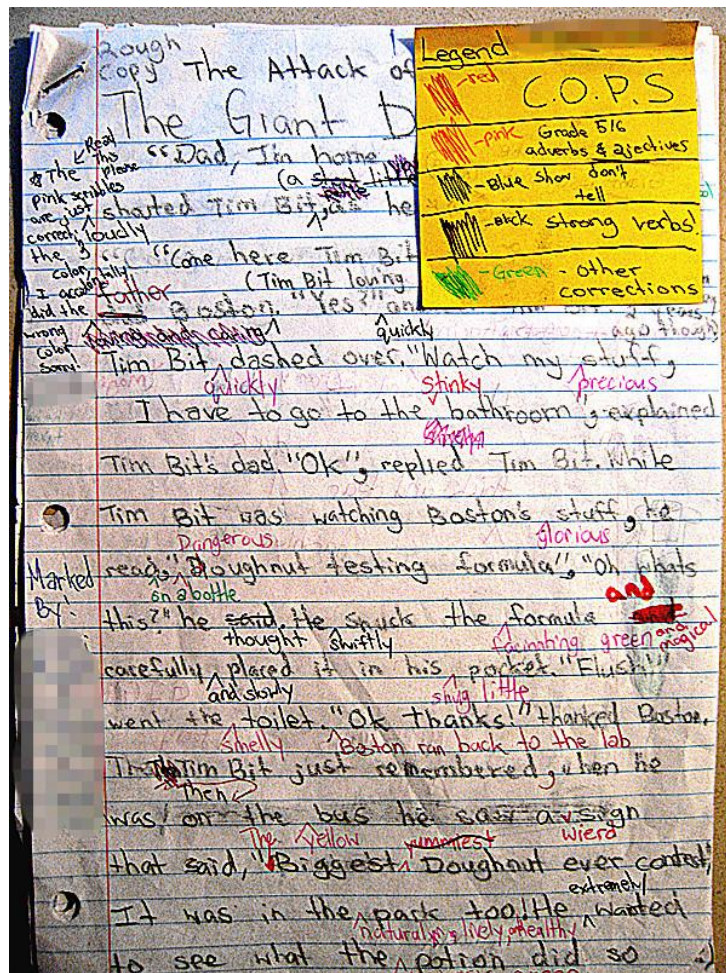 Rough
Copy The Attack of
The Giant D
Legend
red
C.O.P.S
pink Grade 5/6
adverbs & ajectives
Blue show don't
tell
Black strong verbs!
Green - other
corrections
Read
This
please
The
pink scribbles
are just
correcti
the
color,
I accidentally
did the
wrong
color
Sorry!
"Dad, I'm home
(a little
shouted Tim Bit, as he
loudly
"Come here Tim Bit
father (Tim Bit loving
Boston. "Yes?"
ago though)
quickly
Tim Bit dashed over. "Watch my stuff,
quickly stinky precious
I have to go to the bathroom", explained
Tim Bit's dad. "Ok", replied Tim Bit. While
Tim Bit was watching Boston's stuff, he
Dangerous glorious
read, "Doughnut testing formula", "Oh whats
on a bottle and
this?" he said. He snuck the formula and
thought swiftly green and magical
carefully placed it in his pocket. "Flush"
and slowly snug little
went the toilet. "Ok thanks!" thanked Boston.
smelly Boston ran back to the lab
Tim Bit just remembered, when he
Then
was on the bus he saw a sign
The yellow yummiest wierd
that said, "Biggest Doughnut ever contest,
extremely
It was in the park too! He wanted
natural, lively, healthy
to see what the potion did so
Marked
By: